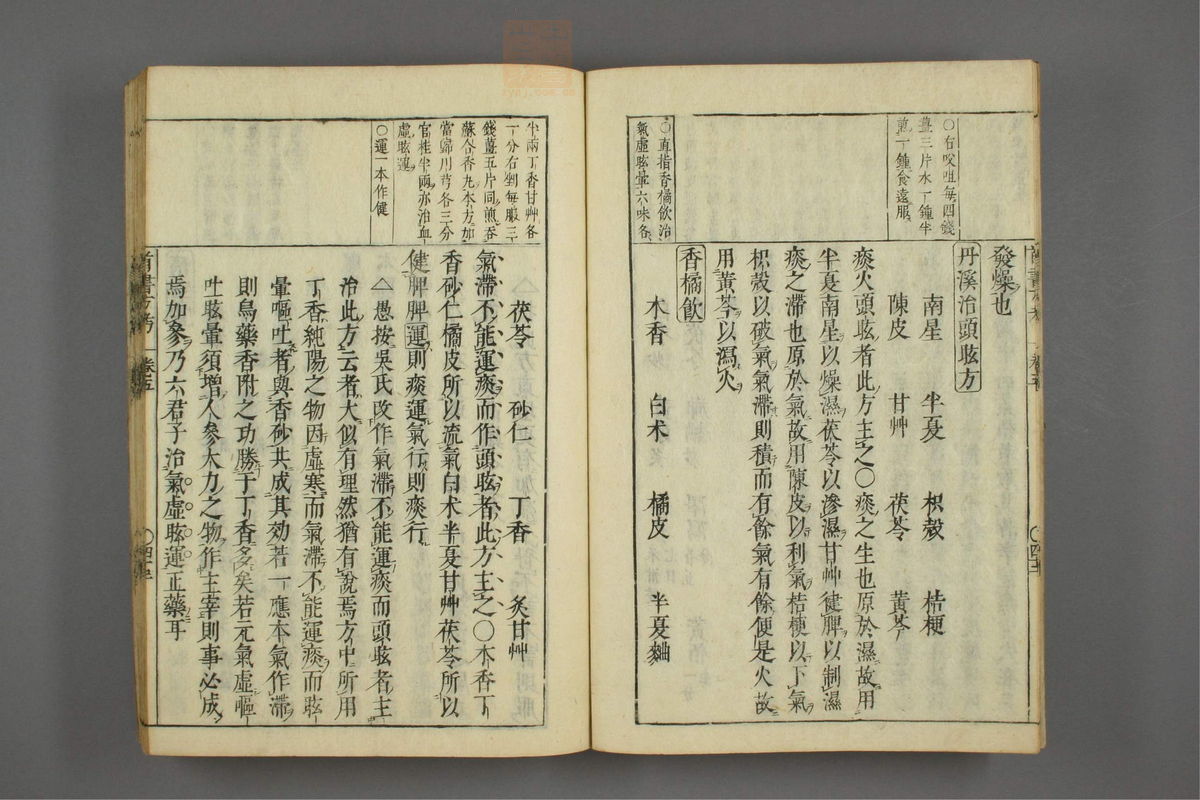 ○右㕮咀每四錢
薑三片水一鍾半
煎一鍾食遠服
○直指香橘飲治
氣虛眩暈六味各
發燥也
丹溪治頭眩方
南星 半夏 枳殼 桔梗
陳皮 甘艸 茯苓 黃芩
痰火頭眩者此方主之○痰之生也原於濕故用
半夏南星以燥濕茯苓以滲濕甘艸健脾以制濕
痰之滯也原於氣故用陳皮以利氣桔梗以下氣
枳殼以破氣氣滯則積而有餘氣有餘便是火故
用黃芩以瀉火
香橘飲
木香 白术 橘皮 半夏麯
半兩丁香甘艸各
一分右剉每服三
錢薑五片同煎吞
蘇合香丸本方加
當歸川芎各三分
官桂半兩亦治血
虛眩運
○運一本作健
茯苓 砂仁 丁香 炙甘艸
氣滯不能運痰而作頭眩者此方主之○木香丁
香砂仁橘皮所以流氣白术半夏甘艸茯苓所以
健脾脾運則痰運氣行則痰行
△愚按吳氏改作氣滯不能運痰而頭眩者主
治此方云者大似有理然猶有說焉方中所用
丁香純陽之物因虛寒而氣滯不能運痰而眩
暈嘔吐者與香砂共成其効若一應本氣作滯
則烏藥香附之功勝于丁香多矣若元氣虛嘔
吐眩暈須增人參大力之物作主宰則事必成
焉加參乃六君子治氣虛眩運正藥耳
卷五